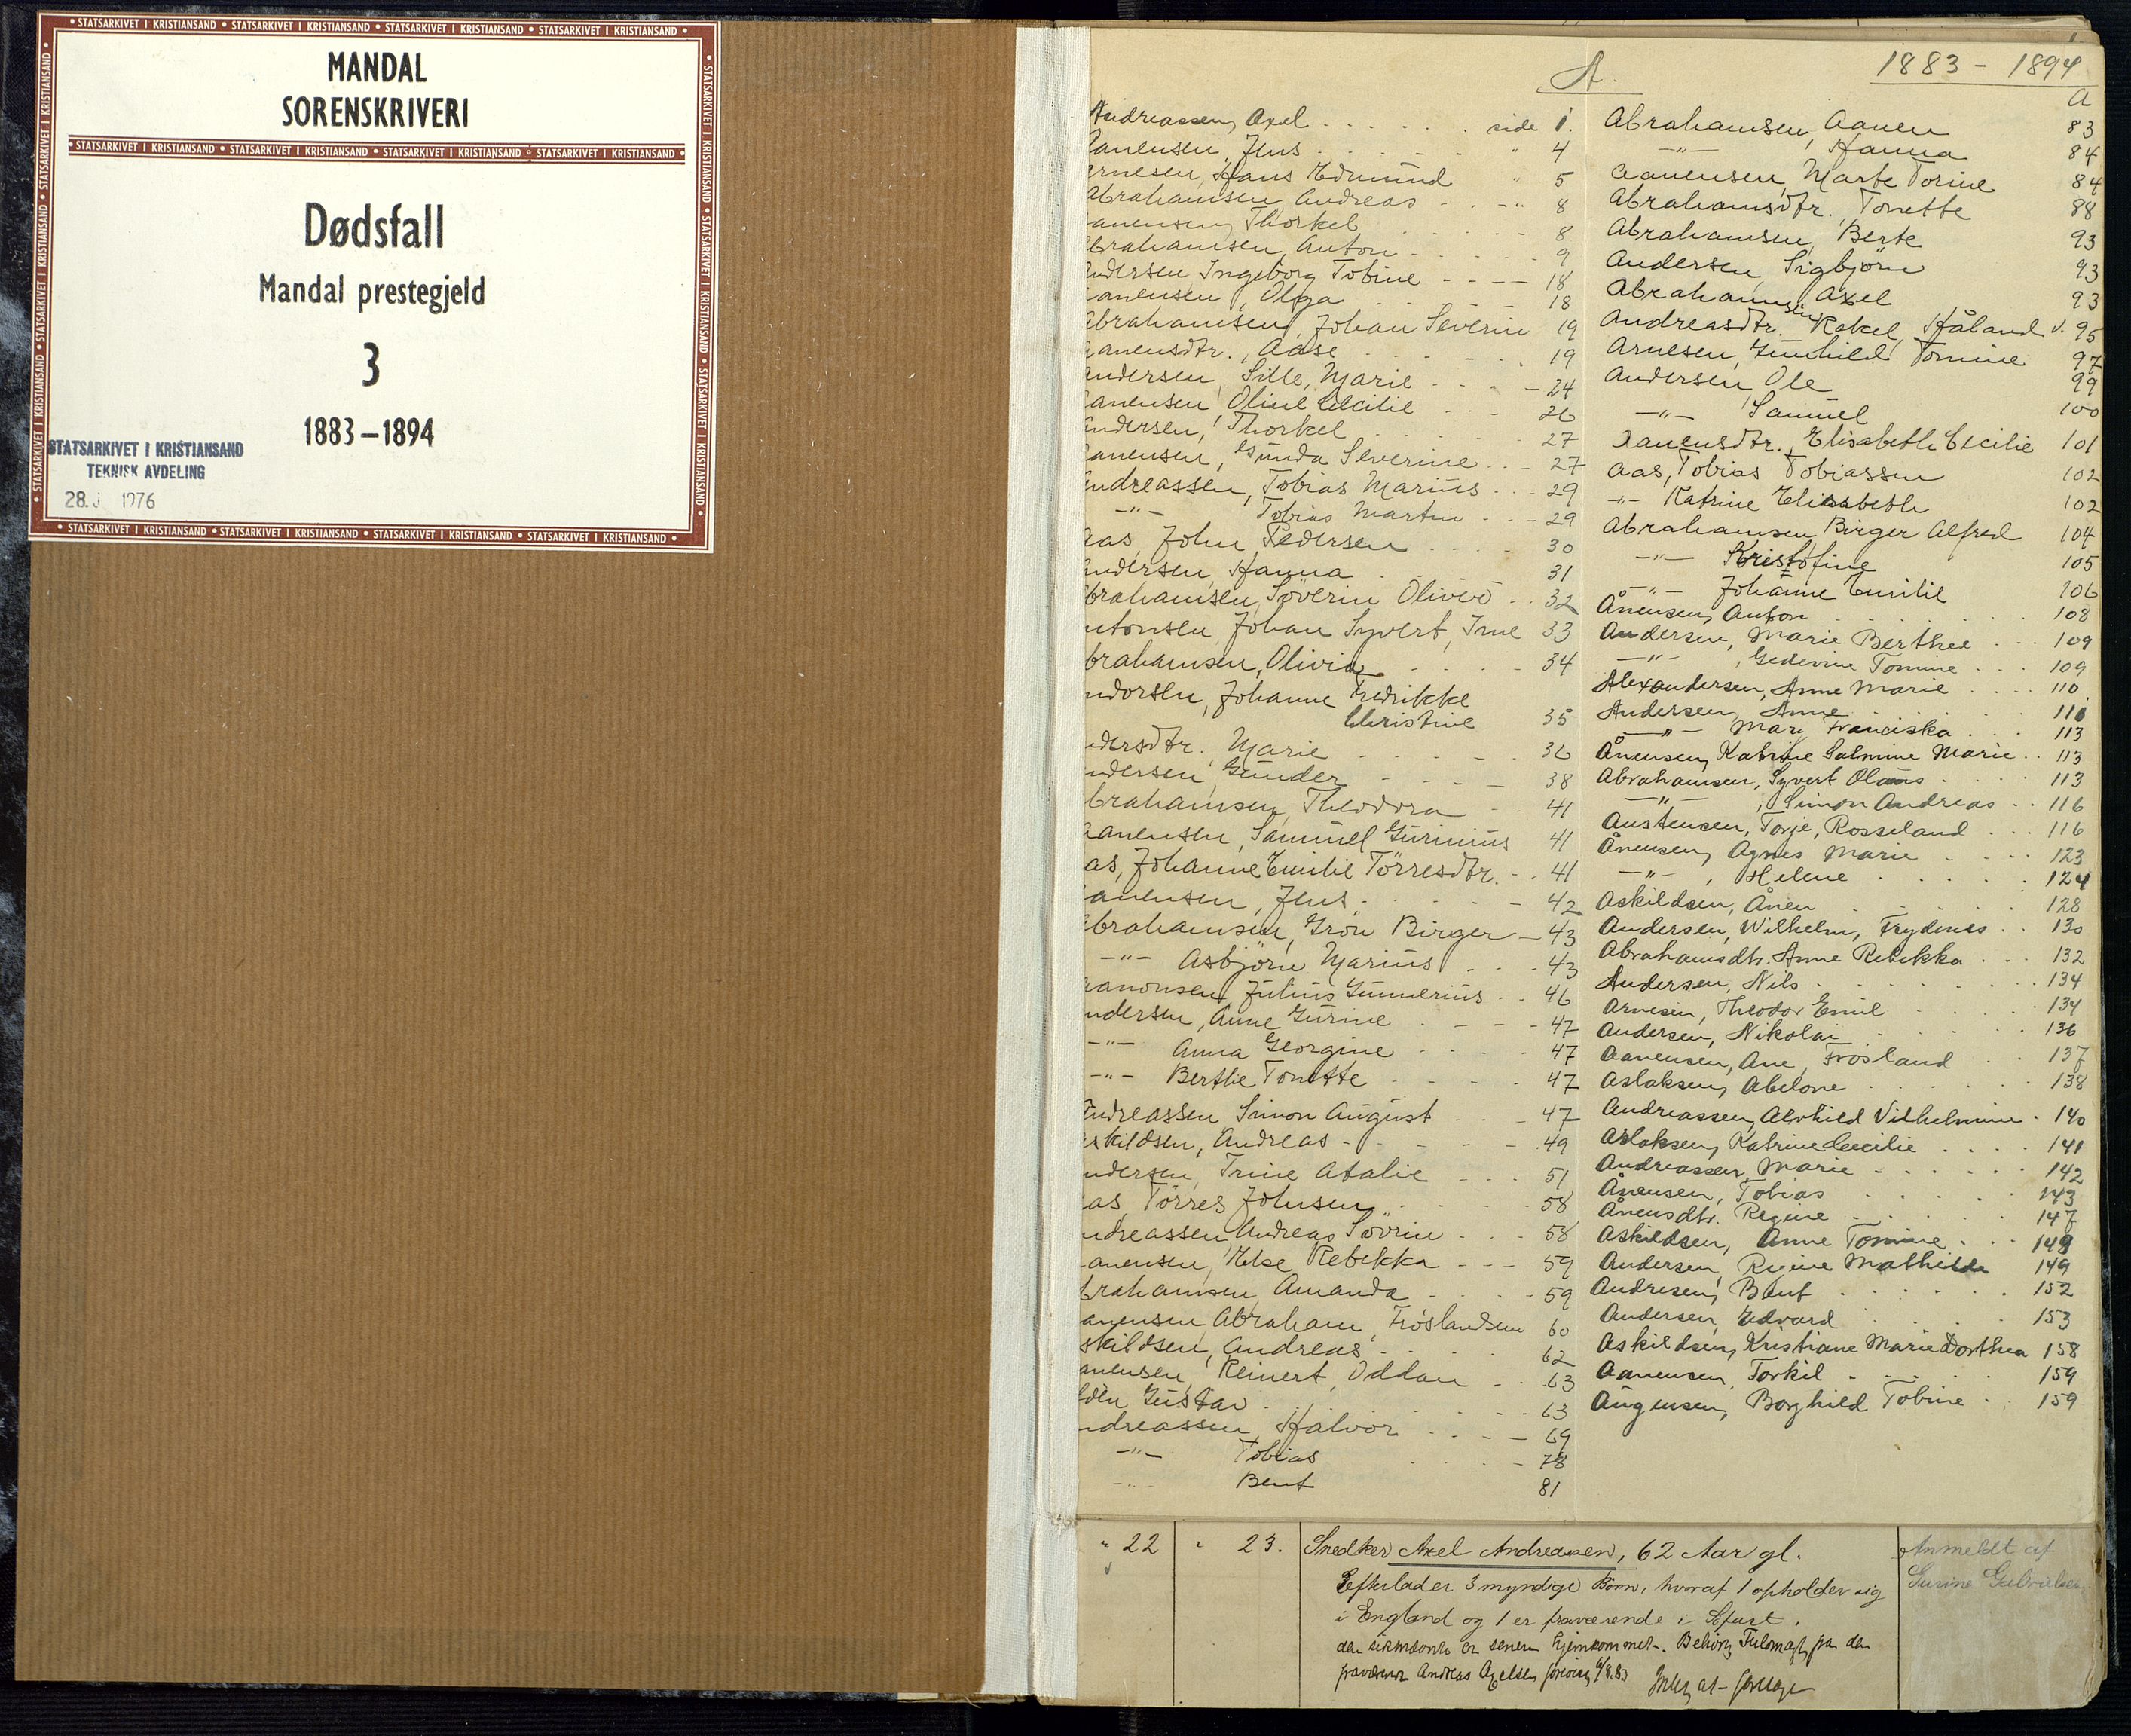 • STATSARKIVET I KRISTIANSAND • STATSARKIVET I KRISTIANSAND • STATSARKIVET I KRISTIANSAND • STATSARKIVET I KRISTIANSAND •
MANDAL
SORENSKRIVERI
• STATSARKIVET I KRISTIANSAND • STATSARKIVET I KRISTIANSAND • STATSARKIVET I KRISTIANSAND • STATSARKIVET I KRISTIANSAND •
Dødsfall
Mandal prestegjeld
3
1883–1894
STATSARKIVET I KRISTIANSAND
TEKNISK AVDELING
28. 1976
• STATSARKIVET I KRISTIANSAND • STATSARKIVET I KRISTIANSAND • STATSARKIVET I KRISTIANSAND • STATSARKIVET I KRISTIANSAND •
1883 - 1894
A.
a
Andreassen, Axel side 1.
Aanensen, Jens " 4
Arnesen, Hans Edmund " 5
Abrahamsen, Andreas " 8
anensen, Thorkel 8
brahamsen, Anton 9
Andersen Ingeborg Tobine 18
anensen, Olga 18
Abrahamsen, Johan Severin 19
anensdtr., Aase 19
Andersen, Sille, Marie 24
anensen, Oline Cecilie 26
Andersen, Thorkel 27
anensen, Gunda Severine 27
Andreassen, Tobias Marius 29
-"- Tobias Martin 29
Aas, John Pedersen 30
Andersen, Hanna 31
brahamsen, Søverin Oliver 32
ntonsen, Johan Syvert, Ime 33
brahamsen, Olivia 34
ndersen, Johanne Fredrikke
Christine 35
ndersdtr. Marie 36
ndersen, Gunder 38
brahamsen, Theodora 41
aanensen, Samuel Gurinius 41
as, Johanne Emilie Tørresdtr. 41
anensen, Jens 42
brahamsen, Grøn Birger 43
-"- Asbjørn Marius 43
aanonsen, Julius Gunnerius 46
ndersen, Anne Gurine 47
-"- Anna Georgine 47
-"- Berthe Tonette 47
Andreassen Simon August 47
skildsen, Andreas 49
ndersen, Trine Atalie 51
as, Tørres Johnsen 58
ndreassen Andreas Søvrin 58
anensen, Else Rebekka 59
brahamsen, Amanda 59
anensen, Abraham, Frøslandsm 60
skildsen, Andreas 62
anensen, Reinert, Oddan 63
Gustav 63
ndreassen, Halvor 69
-"- Tobias 78
-"- Bent 81
Abrahamsen, Aanen 83
-"- Hanna 84
Aanensen, Marte Torine 84
Abrahamsdtr., Tonette 88
Abrahamsen, Berte 93
Andersen, Sigbjørn 93
Abrahamsen, Axel 93
Andreasdtr. Rakel, Håland v. 95
Arnesen, Gunhild Tomine 97
Andersen, Ole 99
-"- Samuel 100
Aanensdtr., Elisabeth Cecilie 101
Aas, Tobias Tobiassen 102
-"- Katrine Elisabeth 102
Abrahamsen, Birger Alfred 104
-"- Kristofine 105
-"- Johanne Emilie 106
Ånensen, Anton 108
Andersen, Marie Berthea 109
-"- , Gedevine Tomine 109
Alexandersen, Anne Marie 110
Andersen, Anne 110
-"- Mary Franciska 113
Ånensen, Katrine Salmine Marie 113
Abrahamsen, Syvert Olaus 113
-"- , Simon Andreas 116
Austensen, Torje, Rosseland 116
Ånensen, Agnes Marie 123
-"- , Helene 124
Askildsen, Ånen 128
Andersen, Wilhelm, Frydenes 130
Abrahamsdtr. Anne Rebekka 132
Andersen, Nils 134
Arnesen, Theodor Emil 134
Andersen, Nikolai 136
Aanensen, Ane, Frøsland 137
Aslaksen, Abelone 138
Andreassen, Alvhild Vilhelmine 140
Aslaksen, Katrine Cecilie 141
Andreassen, Marie 142
Ånensen, Tobias 143
Ånensdtr. Regine 147
Askildsen, Anne Tomine 149
Andersen, Regine Mathilde 149
Andresen, Bent 152
Andersen, Edvard 153
Askildsen, Kristiane Marie Dorthea 158
Aanensen, Torkil 159
Augensen, Borghild Tobine 159
" 22 " 23. Snedker Axel Andreassen, 62 Aar gl.
Efterlader 3 myndige Børn, hvoraf 1 opholder sig
i England og 1 er fraværende i Søfart.
den sidstnævnte er senere hjemkommet. Behørig Fuldmagt fra den
fraværende Andreas Axelsen 6/8.83
Anmeldt af
Surine Gabrielsen